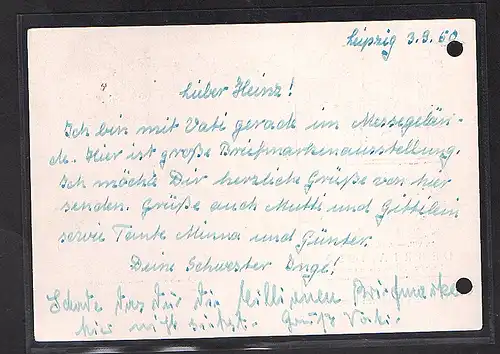 Leipzig 3.3.60
Lieber Heinz!
Ich bin mit Vati gerade im Messegelän-
de. Hier ist große Briefmarkenausstellung.
Ich möchte Dir herzliche Grüße von hier
senden. Grüße auch Mutti und Gittilein
sowie Tante Minna und Günter.
Deine Schwester Inge!
Schade das Du die Millionen Briefmarken
hier nicht siehst. Gruß Vati.